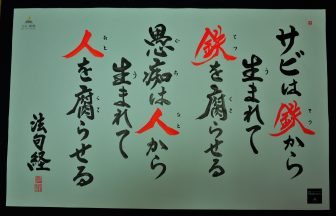 サビは鉄から
生まれて
鉄を腐らせる
愚痴は人から
生まれて
人を腐らせる
法句経